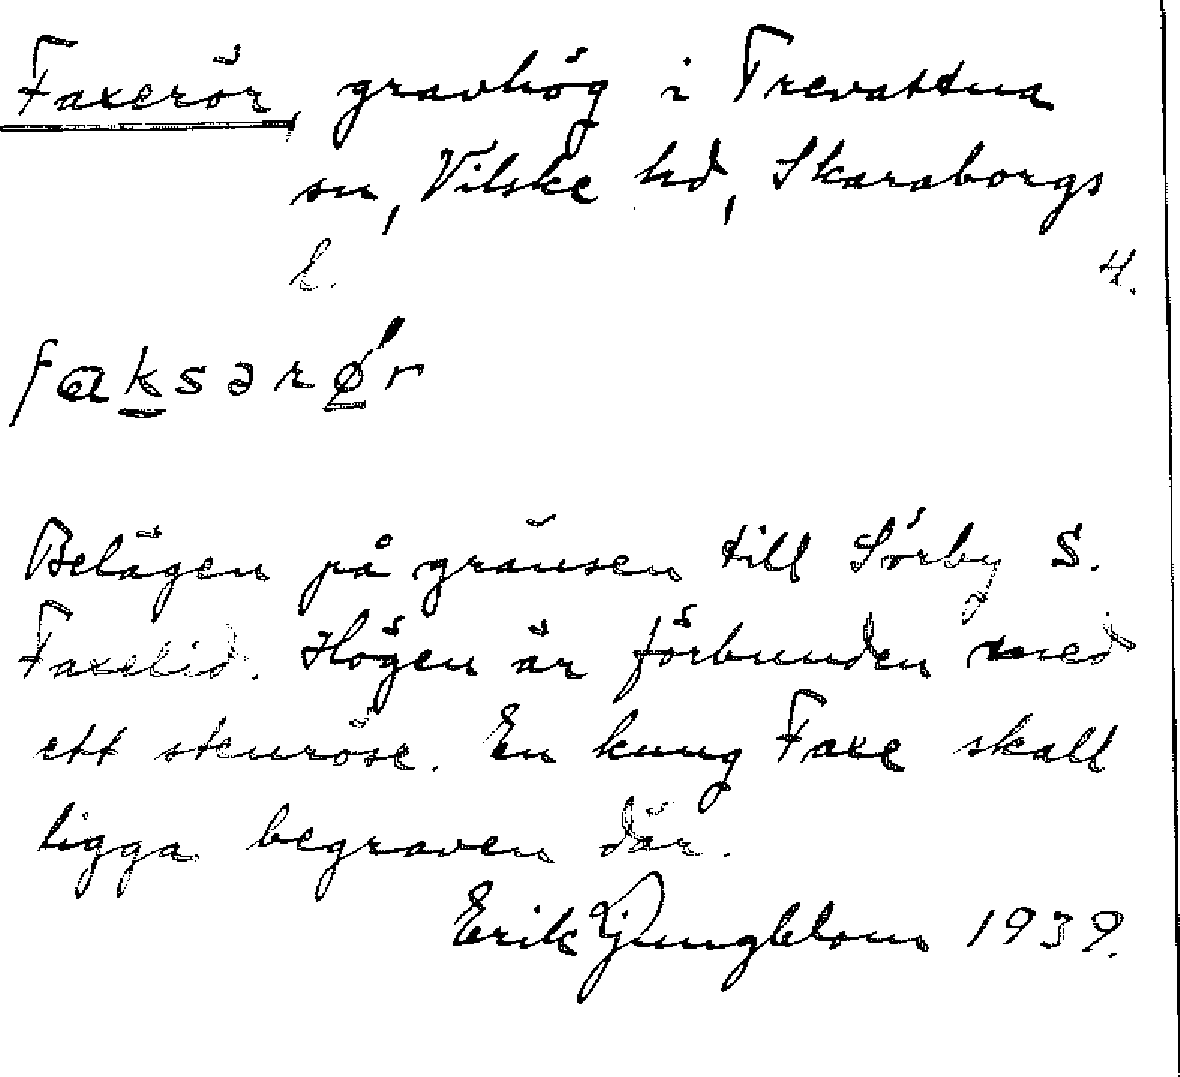 Faxerör, gravhög i Trevattna
sn, Vilske hd, Skaraborgs
l. 4.
faksərø'r
Belägen på gränsen till Sörby S.
Faxelid. Högen är förbunden med
ett stenröse. En kung Faxe skall
ligga begraven där.
Erik Ljungblom 1939.